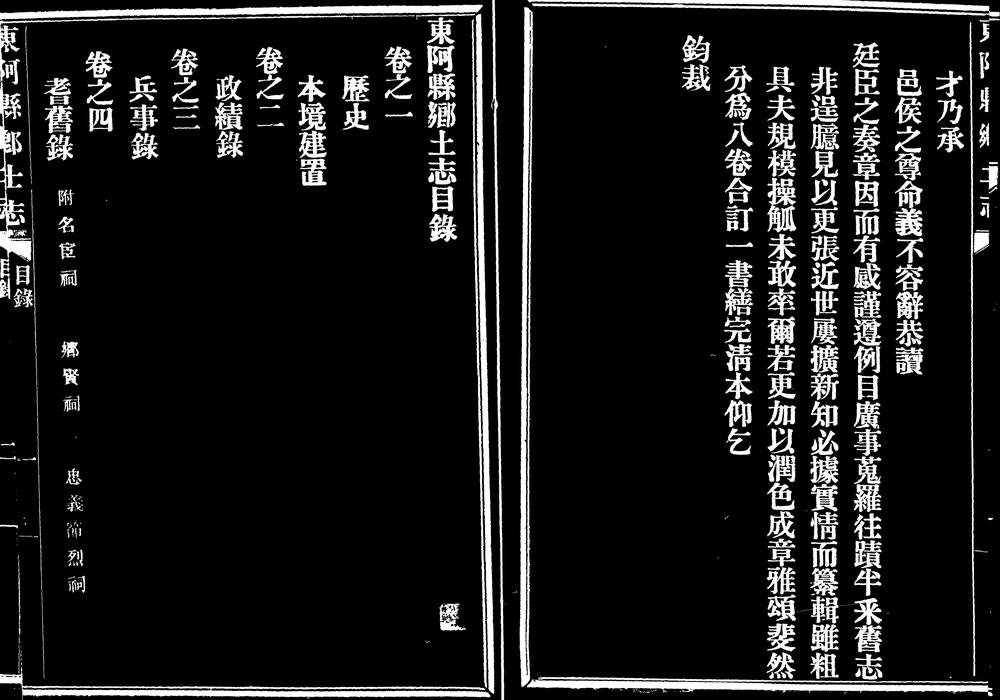 才乃承
邑侯之尊命義不容辭恭讀
廷臣之奏章因而有感謹遵例目廣事蒐羅往蹟半采舊志
非逞臆見以更張近世屢擴新知必據實情而纂輯雖粗
具夫規模操觚未敢率爾若更加以潤色成章雅頌斐然
分爲八卷合訂一書繕完淸本仰乞
鈞裁
東阿縣鄉土志目錄
卷之一
歷史
本境建置
卷之二
政績錄
卷之三
兵事錄
卷之四
耆舊錄 附名宦祠 鄉賢祠 忠義節烈祠
東阿縣鄉土志 目錄 二